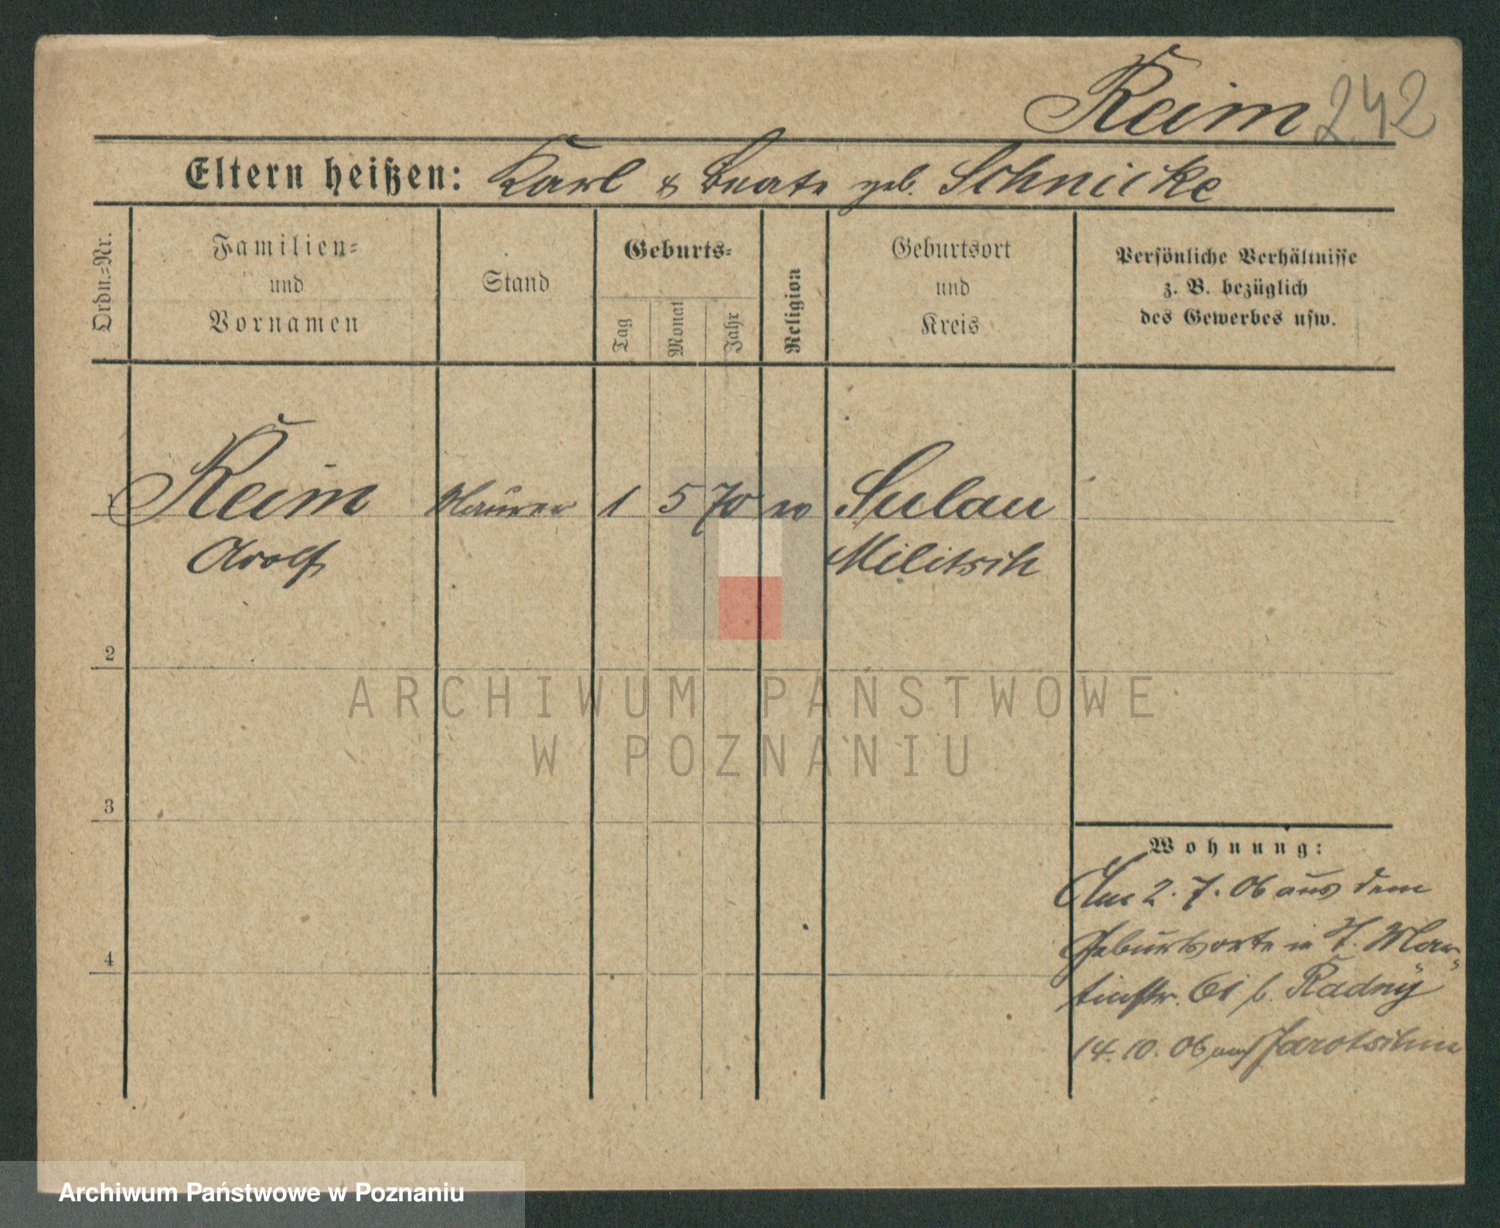 Keim 242
Eltern heißen: Karl & Beate geb. Schnicke
Ordn.=Nr.
Familien=
und
Vornamen
Stand
Geburts=
Tag
Monat
Jahr
Religion
Geburtsort
und
Kreis
Persönliche Verhältnisse
z. B. bezüglich
des Gewerbes usw.
1 Keim Maurer 1 5 70 ev Sulau
Adolf Militsch
2
3
4
Wohnung:
Am 2. 7. 06 aus dem
Geburtsorte in Mar=
tinstr. 61 b. Radny
14. 10. 06 nach Jarotschin
ARCHIWUM PAŃSTWOWE
W POZNANIU
Archiwum Państwowe w Poznaniu